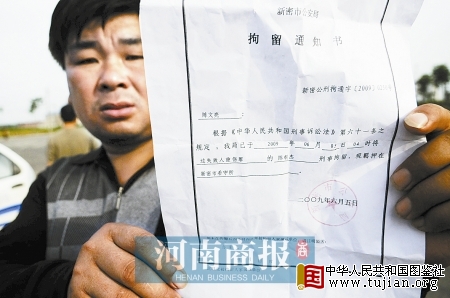 新密市公安局
拘留通知书
新密公刑拘通字〔2009〕
根据《中华人民共和国刑事诉讼法》第六十一条之
规定，我局已于 2009 年 06 月 05 日 04 时将
过失致人重伤案 的 刑事拘留，现羁押在
新密市看守所
二〇〇九年六月五日
河南商报
HENAN BUSINESS DAILY
中华人民共和国图鉴社
www.tujian.org